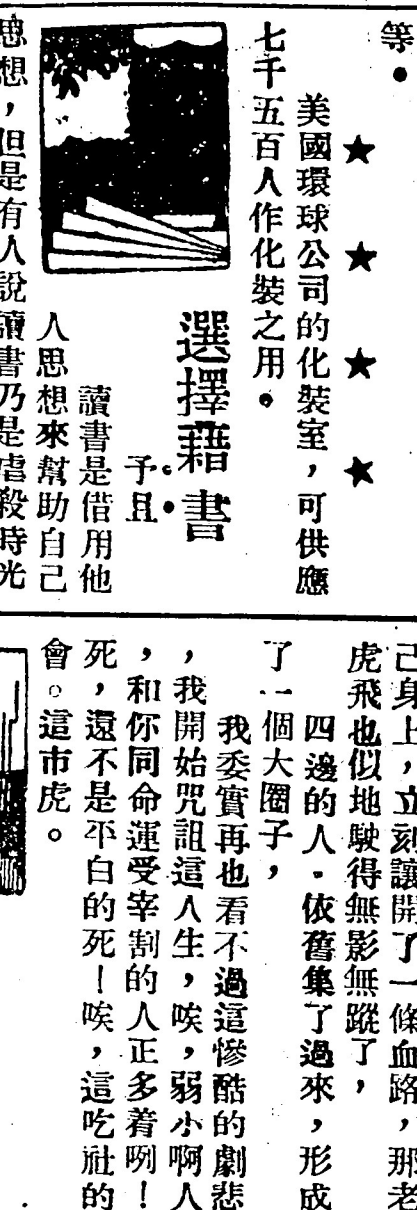 等。
★ ★ ★ ★
美國環球公司的化裝室，可供應
七千五百人作化裝之用。
選擇藉書
予且
讀書是借用他
人思想來幫助自己
思想，但是有人說讀書乃是虐殺時光
己身上，立刻讓開了一條血路，那老
虎飛也似地駛得無影無蹤了，
四邊的人．依舊集了過來，形成
了一個大圈子，
我委實再也看不過這慘酷的劇悲
，我開始咒詛這人生，唉，弱小啊人
，和你同命運受宰割的人正多着咧！
死，還不是平白的死！唉，這吃社的
會。這市虎。